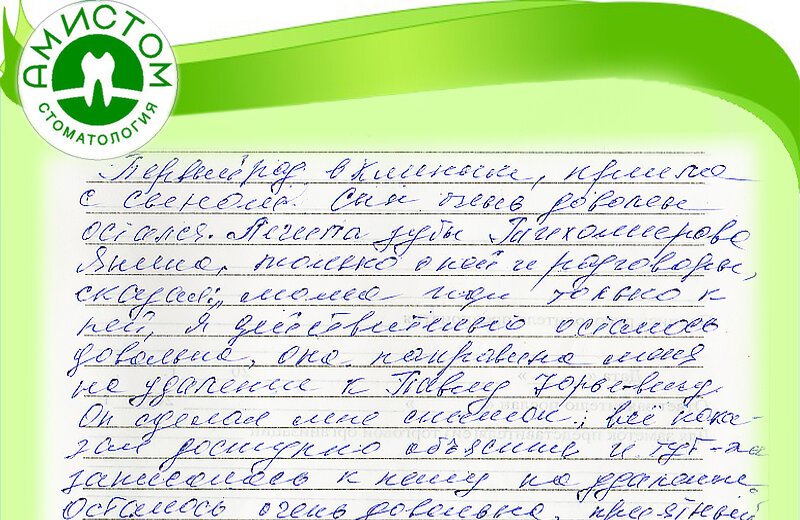 АМИСТОМ
СТОМАТОЛОГИЯ
Первый раз в клинике, пришла
с сыном. Сын очень доволен
остался. Лечила зубы Тихомирова
Янина, только о ней и разговоры,
сказал, мама иди только к
ней, я действительно осталась
довольна, она направила меня
на удаление к Павлу Юрьевичу.
Он сделал мне снимок, всё пока-
зал доступно объяснил и тут-же
записалась к нему на удаление.
Осталась очень довольна, приятный